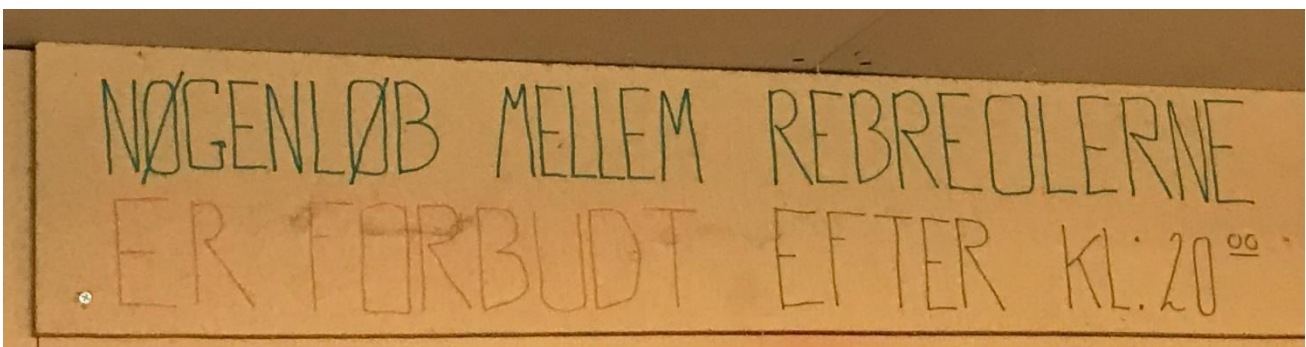 NØGENLØB MELLEM REBREOLERNE
ER FORBUDT EFTER KL: 20⁰⁰